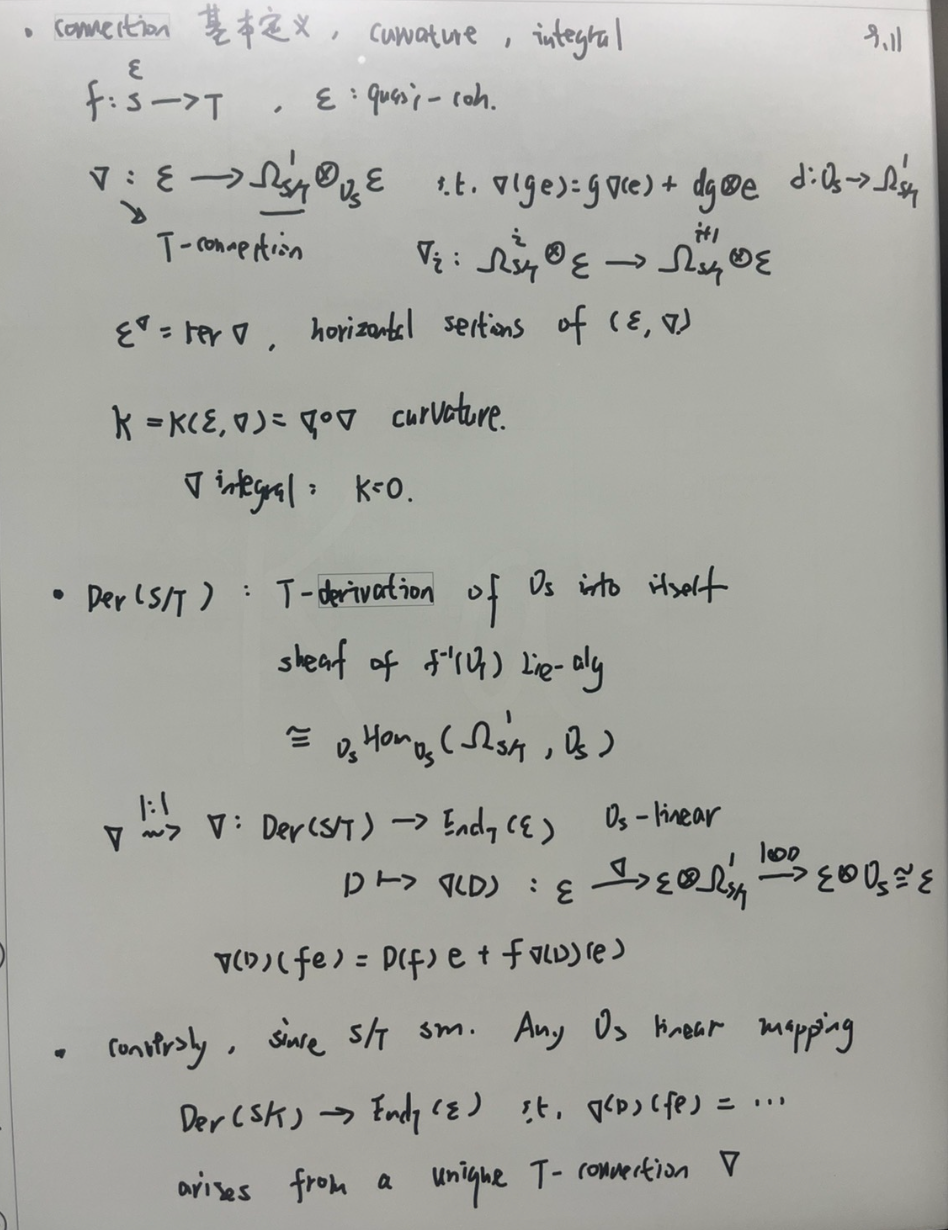 · connection 基本定义, curvature, integral 9.11
ε
f: S → T , ε : quasi-coh.
∇ : ε → Ω¹_{S/T} ⊗_{O_S} ε s.t. ∇(ge) = g∇(e) + dg⊗e d: O_S → Ω¹_{S/T}
T-connection ∇_i : Ω^i_{S/T} ⊗ ε → Ω^{i+1}_{S/T} ⊗ ε
ε^∇ = ker ∇ , horizontal sections of (ε, ∇)
K = K(ε, ∇) = ∇₁∘∇ curvature.
∇ integral : K=0.
· Der(S/T) : T-derivation of O_S into itself
sheaf of f⁻¹(O_T) Lie-alg
≅ _{O_S}Hom_{O_S}(Ω¹_{S/T}, O_S)
∇ 1:1 ⇝ ∇: Der(S/T) → End_T(ε) O_S-linear
D ↦ ∇(D) : ε —∇→ ε⊗Ω¹_{S/T} —1⊗D→ ε⊗O_S ≅ ε
∇(D)(fe) = D(f)e + f∇(D)(e)
· conversly, since S/T sm. Any O_S linear mapping
Der(S/T) → End_T(ε) s.t. ∇(D)(fe) = ...
arises from a unique T-connection ∇